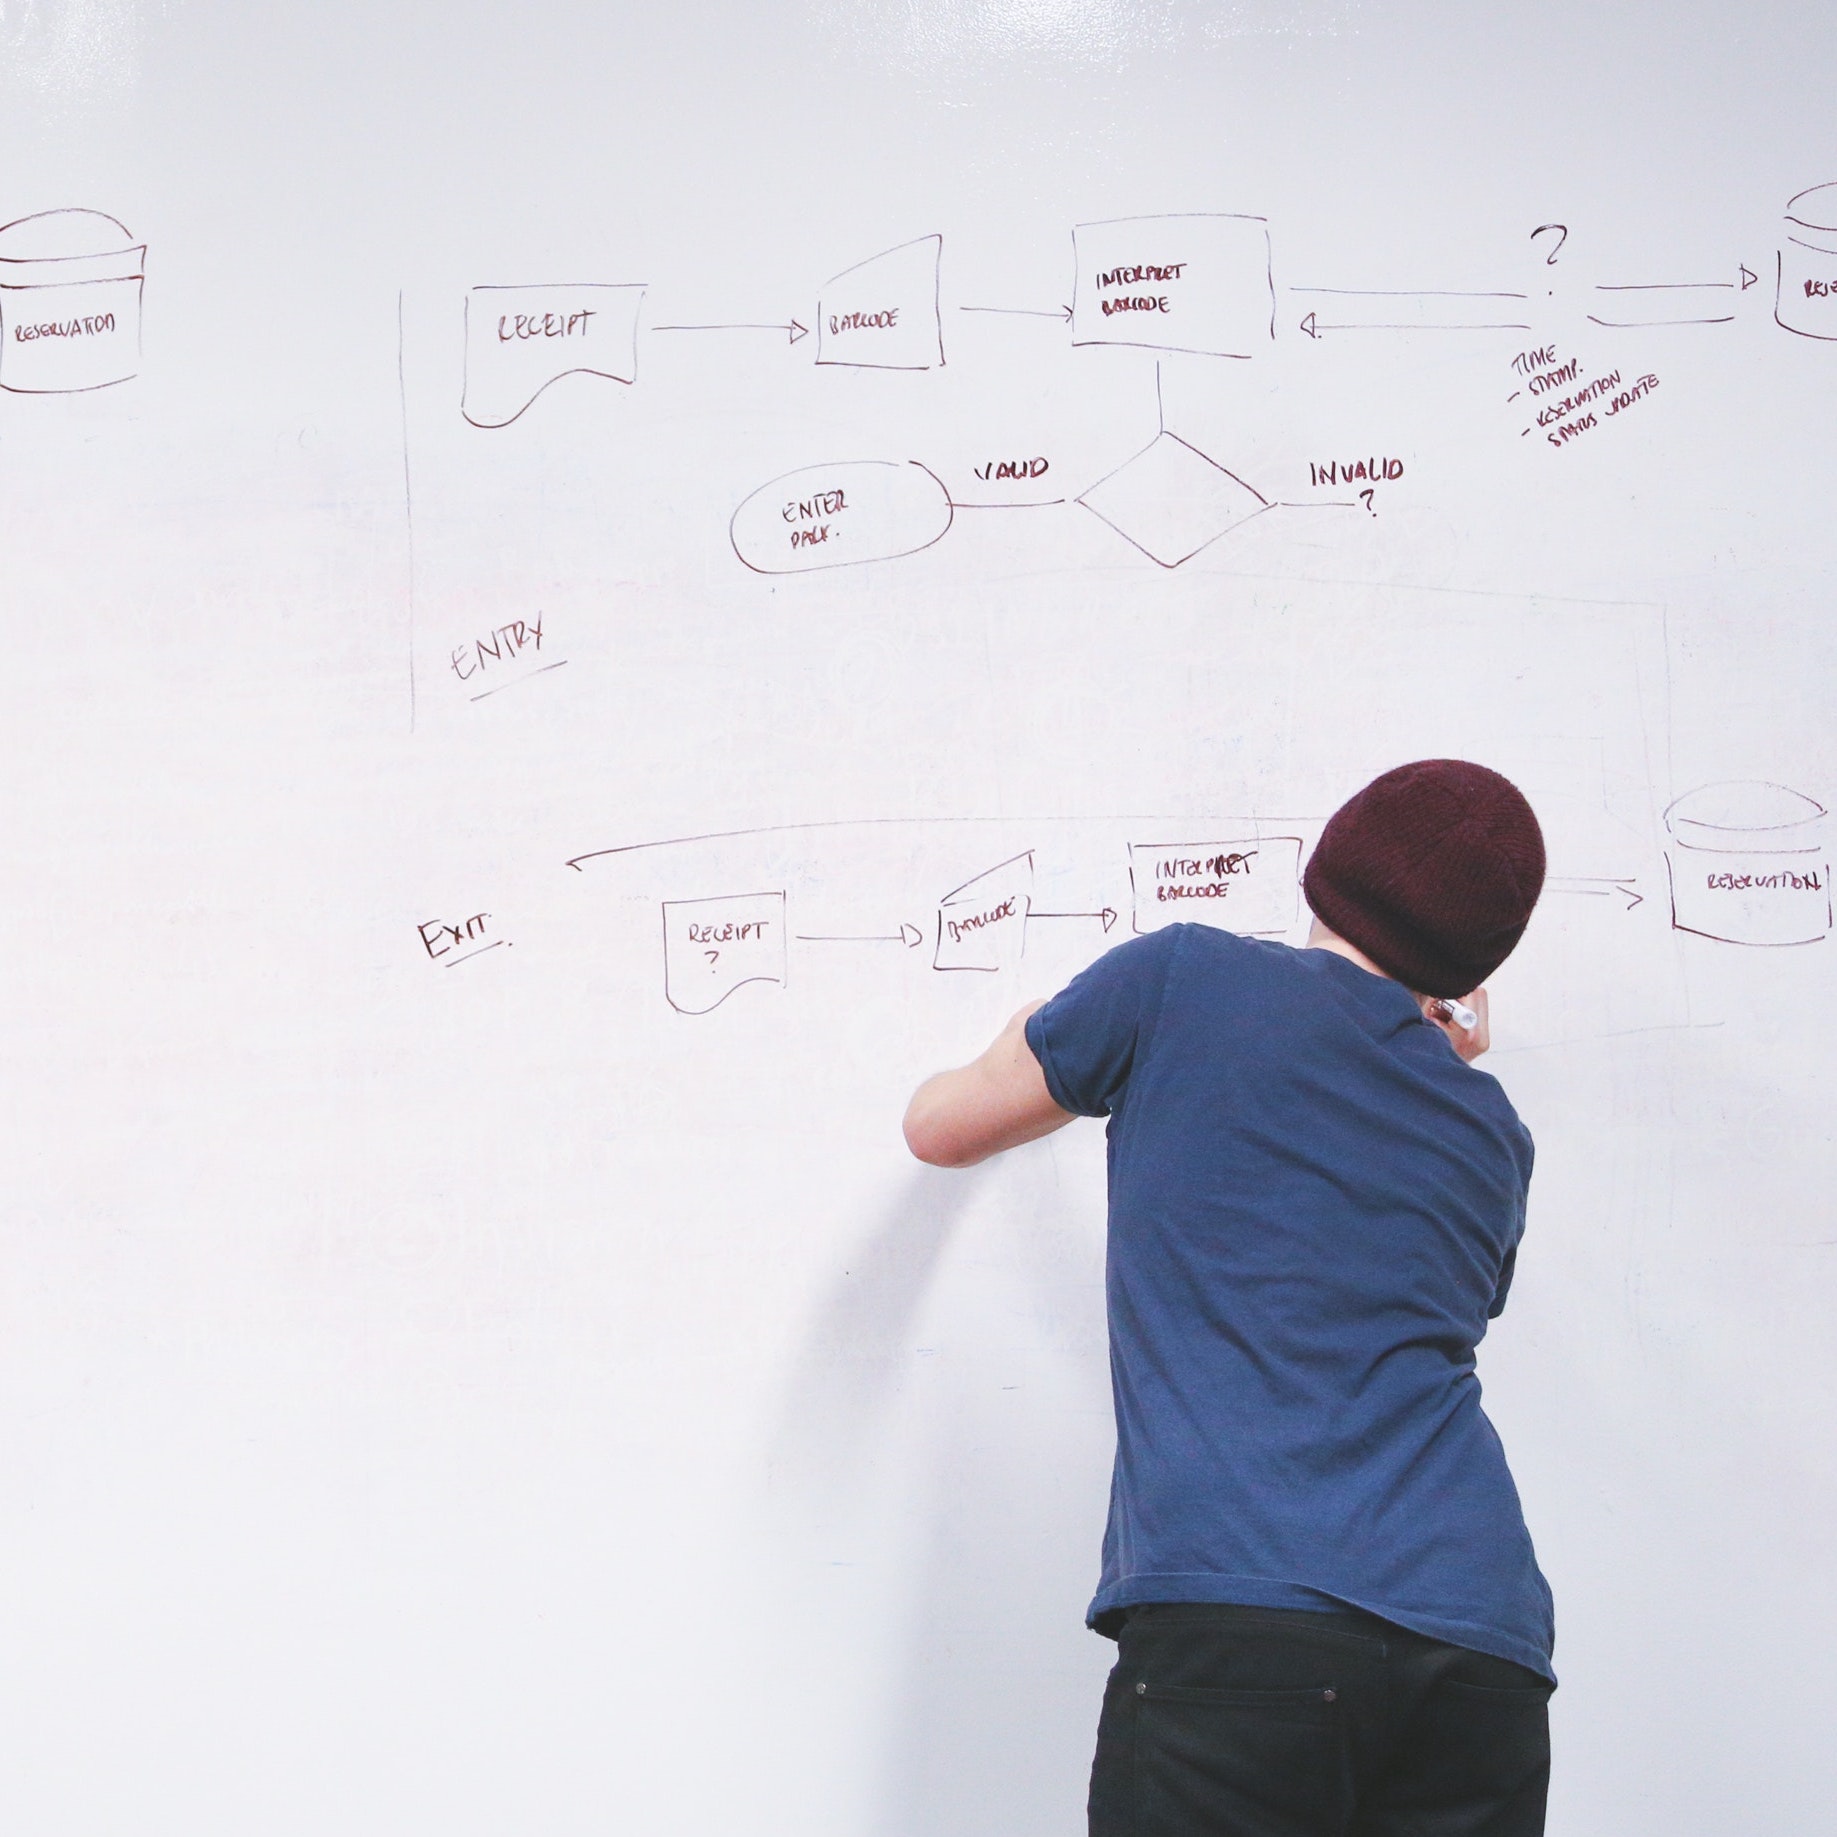 RESERVATION
RECEIPT
BARCODE
INTERPRET
BARCODE
?
RESE
TIME
- STAMP.
- RESERVATION
STATUS UPDATE
VALID
INVALID
?
ENTER
PARK.
ENTRY
EXIT.
RECEIPT
?
BARCODE
INTERPRET
BARCODE
RESERVATION